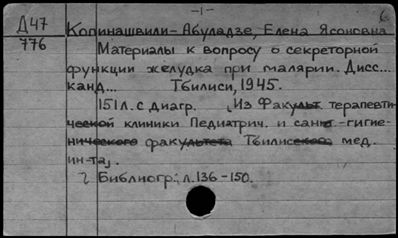 -1-
6
Д47
776
Копинашвили-Абуладзе, Елена Ясоновна
Материалы к вопросу о секреторной
функции желудка при малярии. Дисс...
канд... Тбилиси, 1945.
151л. с диагр. Из Факульт терапевти-
ческой клиники Педиатрич. и санит-гигие-
нического факультета Тбилисского мед.
ин-та.
Библиогр: л.136-150.